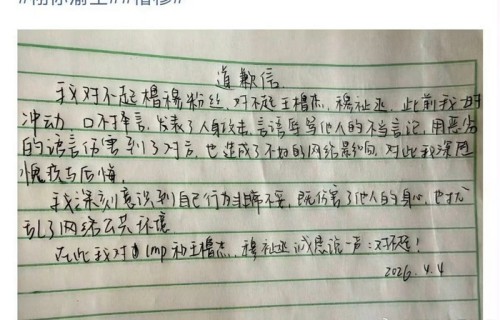 道歉信
我对不起橹穆粉丝，对不起王橹杰，穆祉丞，此前我一时
冲动，口不择言，发表了人身攻击，言语辱骂他人的不当言记，用恶劣
的语言伤害到了对方，也造成了不好的网络影响，对此我深感
愧疚与后悔。
我深刻意识到自己行为非常不妥，既伤害了他人的身心，也扰
乱了网络公共环境
在此我对 lmp和王橹杰，穆祉丞诚恳说一声：对不起！
2026.4.4